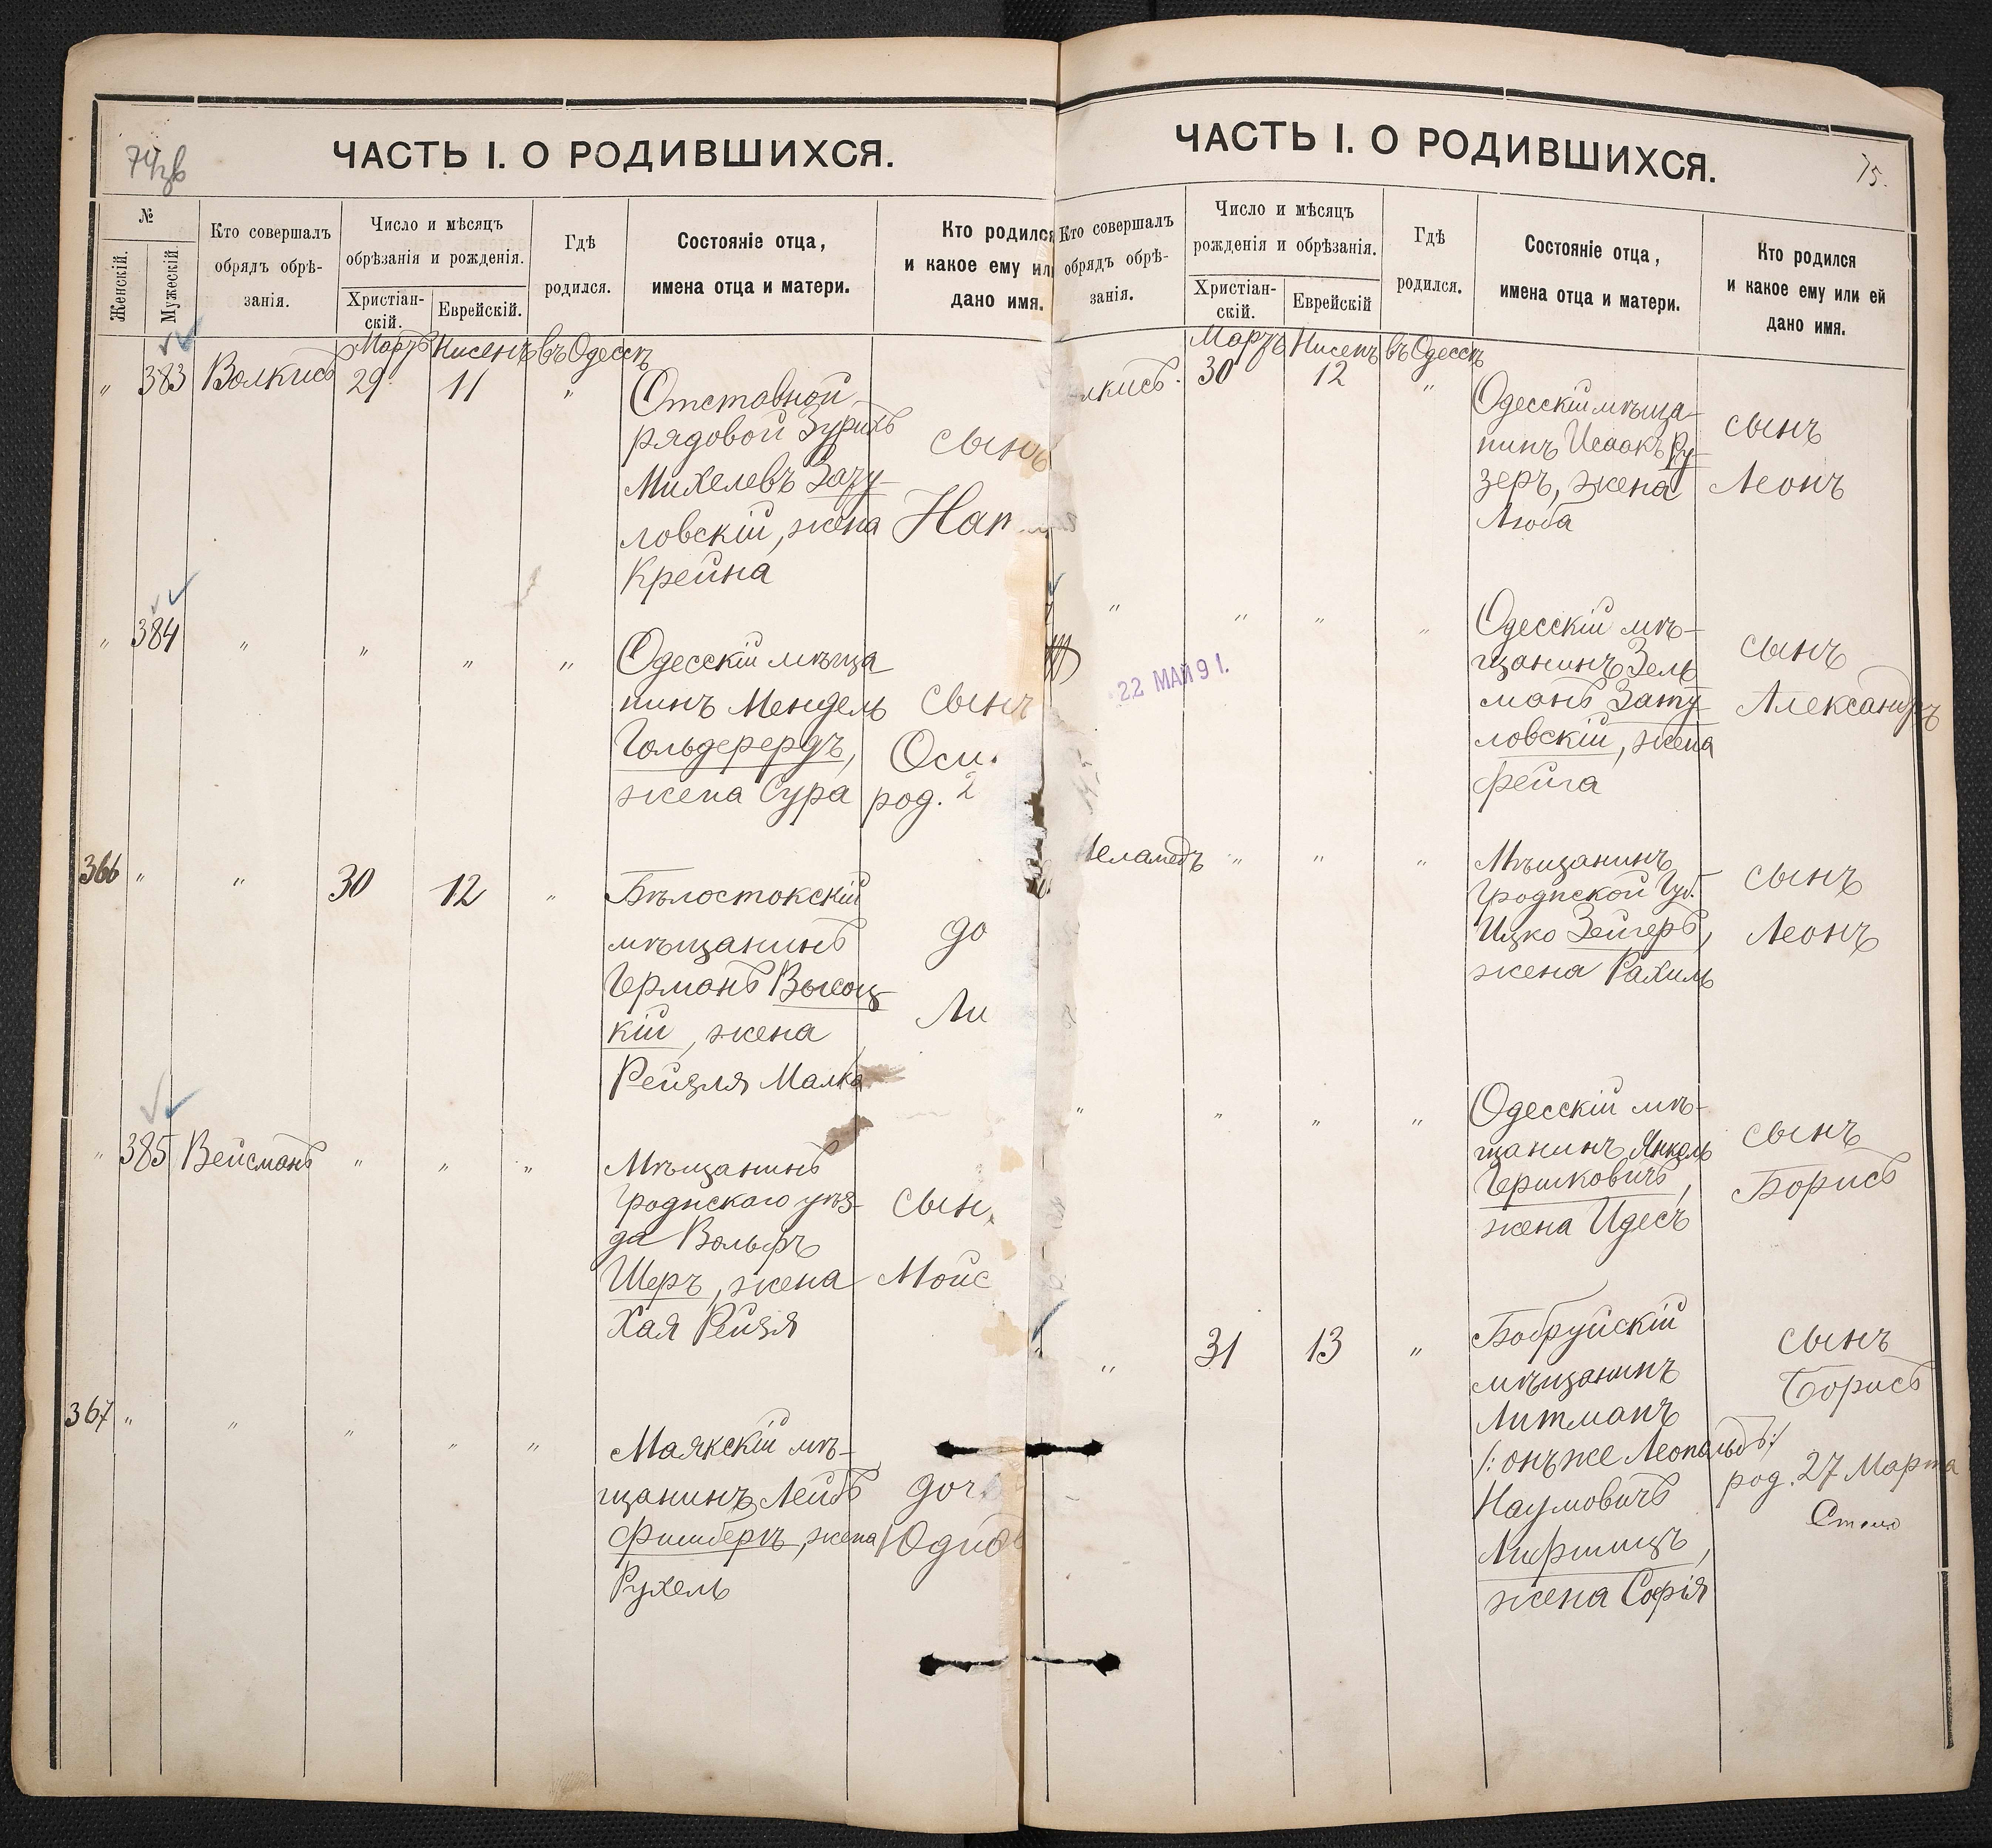 74 зв
ЧАСТЬ I. О РОДИВШИХСЯ.
№
Женскій.
Мужескій
Кто совершалъ
обрядъ обрѣ-
занія.
Число и мѣсяцъ
обрѣзанія и рожденія.
Христіан-
скій.
Еврейскій.
Гдѣ
родился.
Состояніе отца,
имена отца и матери.
Кто родился
и какое ему или
дано имя.
Мартъ Нисенъ въ Одессѣ
„ 383 Волкисъ 29 11 „
Отставной
рядовой Зурихъ
Михелевъ Зату-
ловскій, жена
Крейна
сынъ
384
„ „ „ „ „
Одесскій мѣща
нинъ Мендель
Гольдефердъ,
жена Сура
сынъ
род. 2
366 „ „ 30 12 „
Бѣлостокскій
мѣщанинъ
Германъ Высоц-
кій, жена
Рейзля Малка
до
Ли
„ 385 Вейсманъ „ „ „
Мѣщанинъ
Гродненского уѣз-
да Вольфъ
Шеръ, жена
Хая Рейзя
сын
Мойс
367 „ „ „ „ „
Маякскій мѣ-
щанинъ Лейбъ
Фишбергъ, жена
Рухель
доч
Юдиѳ
ЧАСТЬ I. О РОДИВШИХСЯ.
75.
Кто совершалъ
обрядъ обрѣ-
занія.
Число и мѣсяцъ
рожденія и обрѣзанія.
Христіан-
скій.
Еврейскій
Гдѣ
родился.
Состояніе отца,
имена отца и матери.
Кто родился
и какое ему или ей
дано имя.
Мартъ Нисенъ въ Одессѣ
лкисъ. 30 12 „
Одесскій мѣща-
нинъ Исаакъ Ру-
зеръ, жена
Люба
сынъ
Леонъ
„ „ „ „
22 МАЙ 91.
Одесскій мѣ-
щанинъ Зель
манъ Зату-
ловскій, жена
Фейга
сынъ
Александръ
Меламедъ „ „ „
Мѣщанинъ
Гродненской Губ.
Ицко Зейгеръ,
жена Рахиль
сынъ
Леонъ
„ „ „ „
Одесскій мѣ-
щанинъ Янкель
Гершковичъ,
жена Идесъ
сынъ
Борисъ
„ 31 13 „
Бобруйскій
мѣщанинъ
Литманъ
/: онъ же Леопольдъ :/
Наумовичъ
Лифшицъ,
жена Софія
сынъ
Борисъ
род. 27 Марта